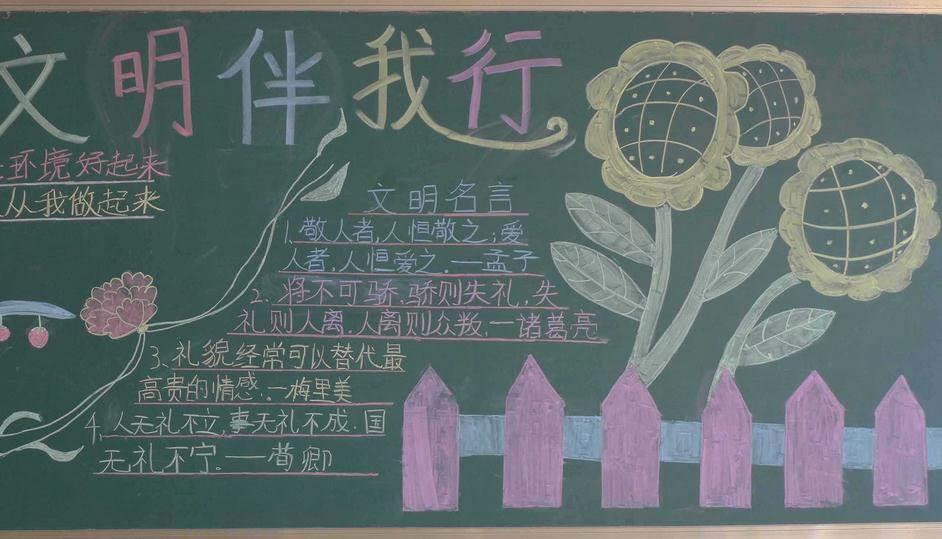 文明伴我行
环境好起来
从我做起来
文明名言
1.敬人者,人恒敬之;爱
人者,人恒爱之。—孟子
2.将不可骄,骄则失礼,失
礼则人离,人离则众叛。—诸葛亮
3.礼貌经常可以替代最
高贵的情感。—梅里美
4.人无礼不立,事无礼不成,国
无礼不宁。——荀卿